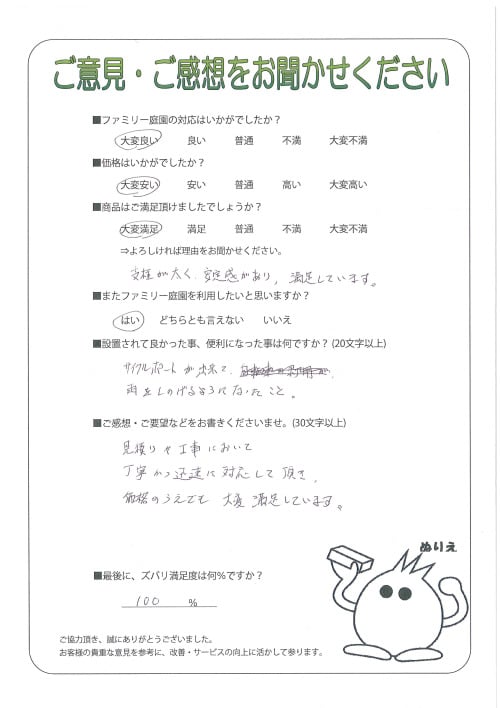 ご意見・ご感想をお聞かせください
■ファミリー庭園の対応はいかがでしたか?
大変良い 良い 普通 不満 大変不満
■価格はいかがでしたか?
大変安い 安い 普通 高い 大変高い
■商品はご満足頂けましたでしょうか?
大変満足 満足 普通 不満 大変不満
⇒よろしければ理由をお聞かせください。
支柱が太く、安定感があり、満足しています。
■またファミリー庭園を利用したいと思いますか?
はい どちらとも言えない いいえ
■設置されて良かった事、便利になった事は何ですか? (20文字以上)
サイクルポートが出来て、
雨をしのげるようになったこと。
■ご感想・ご要望などをお書きくださいませ。(30文字以上)
見積りや工事において
丁寧かつ迅速に対応して頂き、
価格のうえでも大変満足しています。
ぬりえ
■最後に、ズバリ満足度は何%ですか?
100 %
ご協力頂き、誠にありがとうございました。
お客様の貴重な意見を参考に、改善・サービスの向上に活かして参ります。